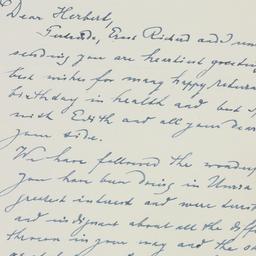 Dear Herbert,
Gertrude, Ernst Richard and
sending you are heartiest greetings
best wishes for many happy returns
birthday in health and best
with Edith and all your dear
your side.
We have followed the wonderful
you have been doing in Unrra
greatest interest and were
and indignant about all the
thrown in your way and the